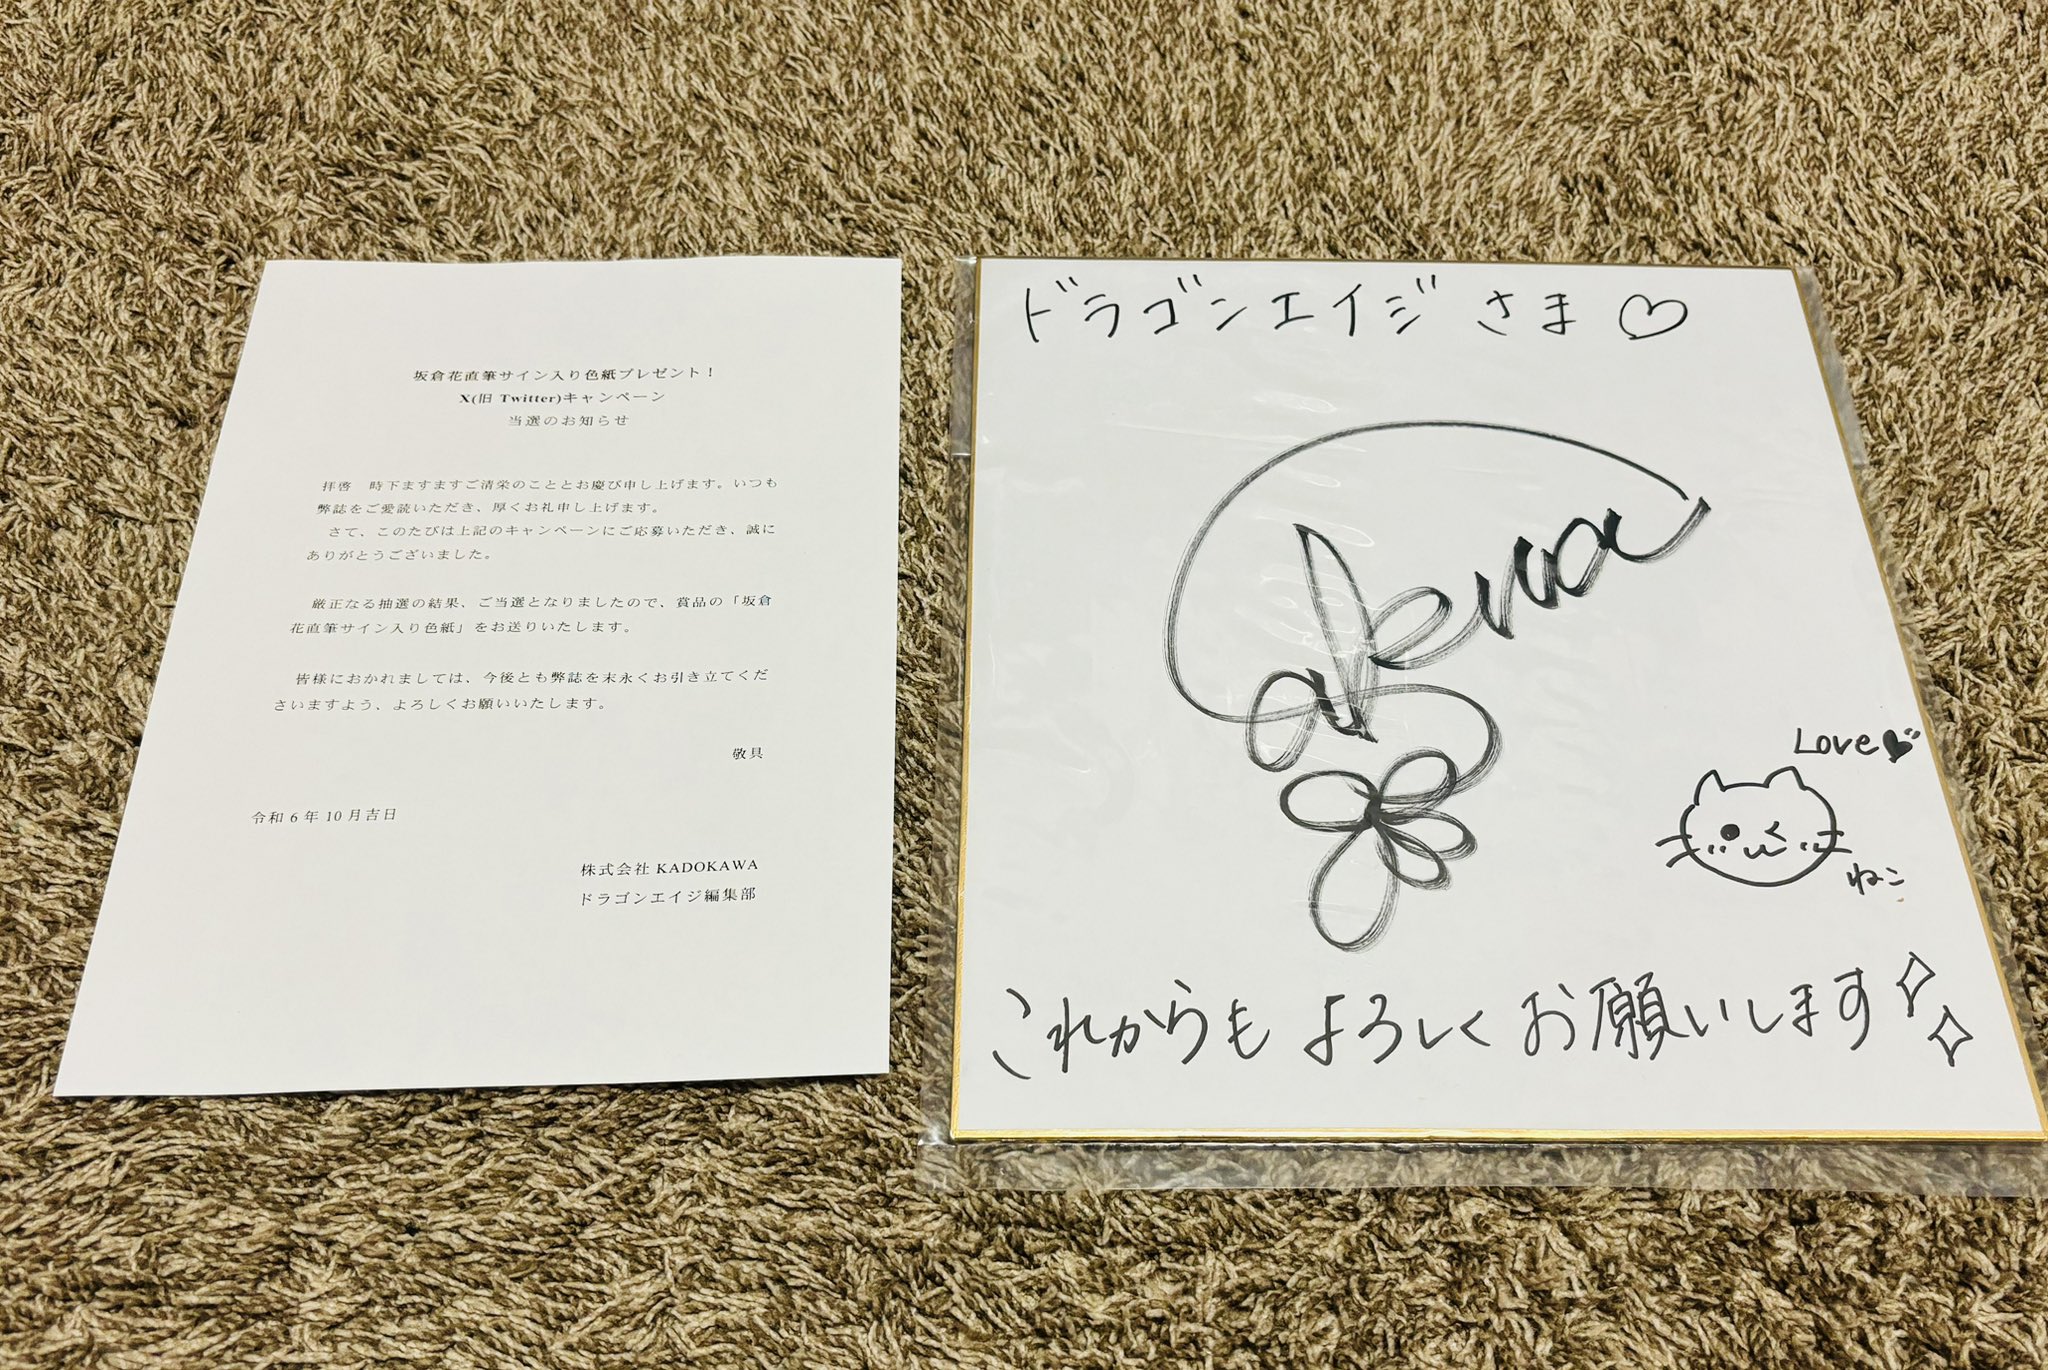 坂倉花直筆サイン入り色紙プレゼント！
X(旧 Twitter)キャンペーン
当選のお知らせ
拝啓　時下ますますご清栄のこととお慶び申し上げます。いつも
弊誌をご愛読いただき、厚くお礼申し上げます。
さて、このたびは上記のキャンペーンにご応募いただき、誠に
ありがとうございました。
厳正なる抽選の結果、ご当選となりましたので、賞品の「坂倉
花直筆サイン入り色紙」をお送りいたします。
皆様におかれましては、今後とも弊誌を末永くお引き立てくだ
さいますよう、よろしくお願いいたします。
敬具
令和 6 年 10 月吉日
株式会社 KADOKAWA
ドラゴンエイジ編集部
ドラゴンエイジ さま♡
Love
ねこ
これからも よろしく お願いします